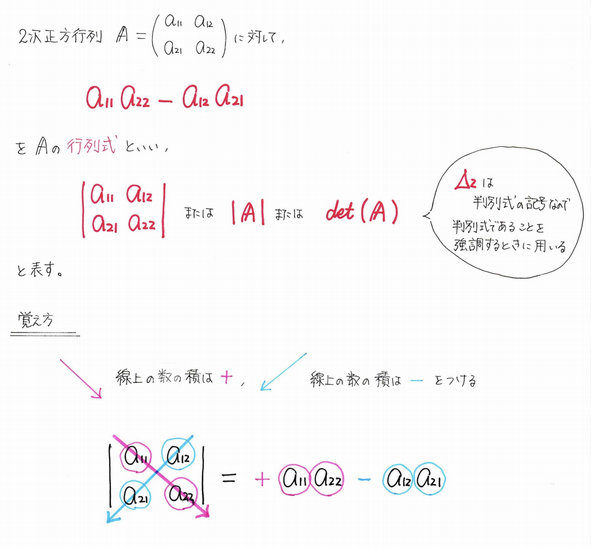 2次正方行列 A = ( a11 a12 a21 a22 ) に対して,
a11 a22 − a12 a21
を A の 行列式 といい,
| a11 a12 a21 a22 | または |A| または det(A)
Δ2 は
判別式の記号なので
判別式であることを
強調するときに用いる
と表す。
覚え方
線上の数の積は +, 線上の数の積は − をつける
| a11 a12 a21 a22 | = + a11 a22 − a12 a21